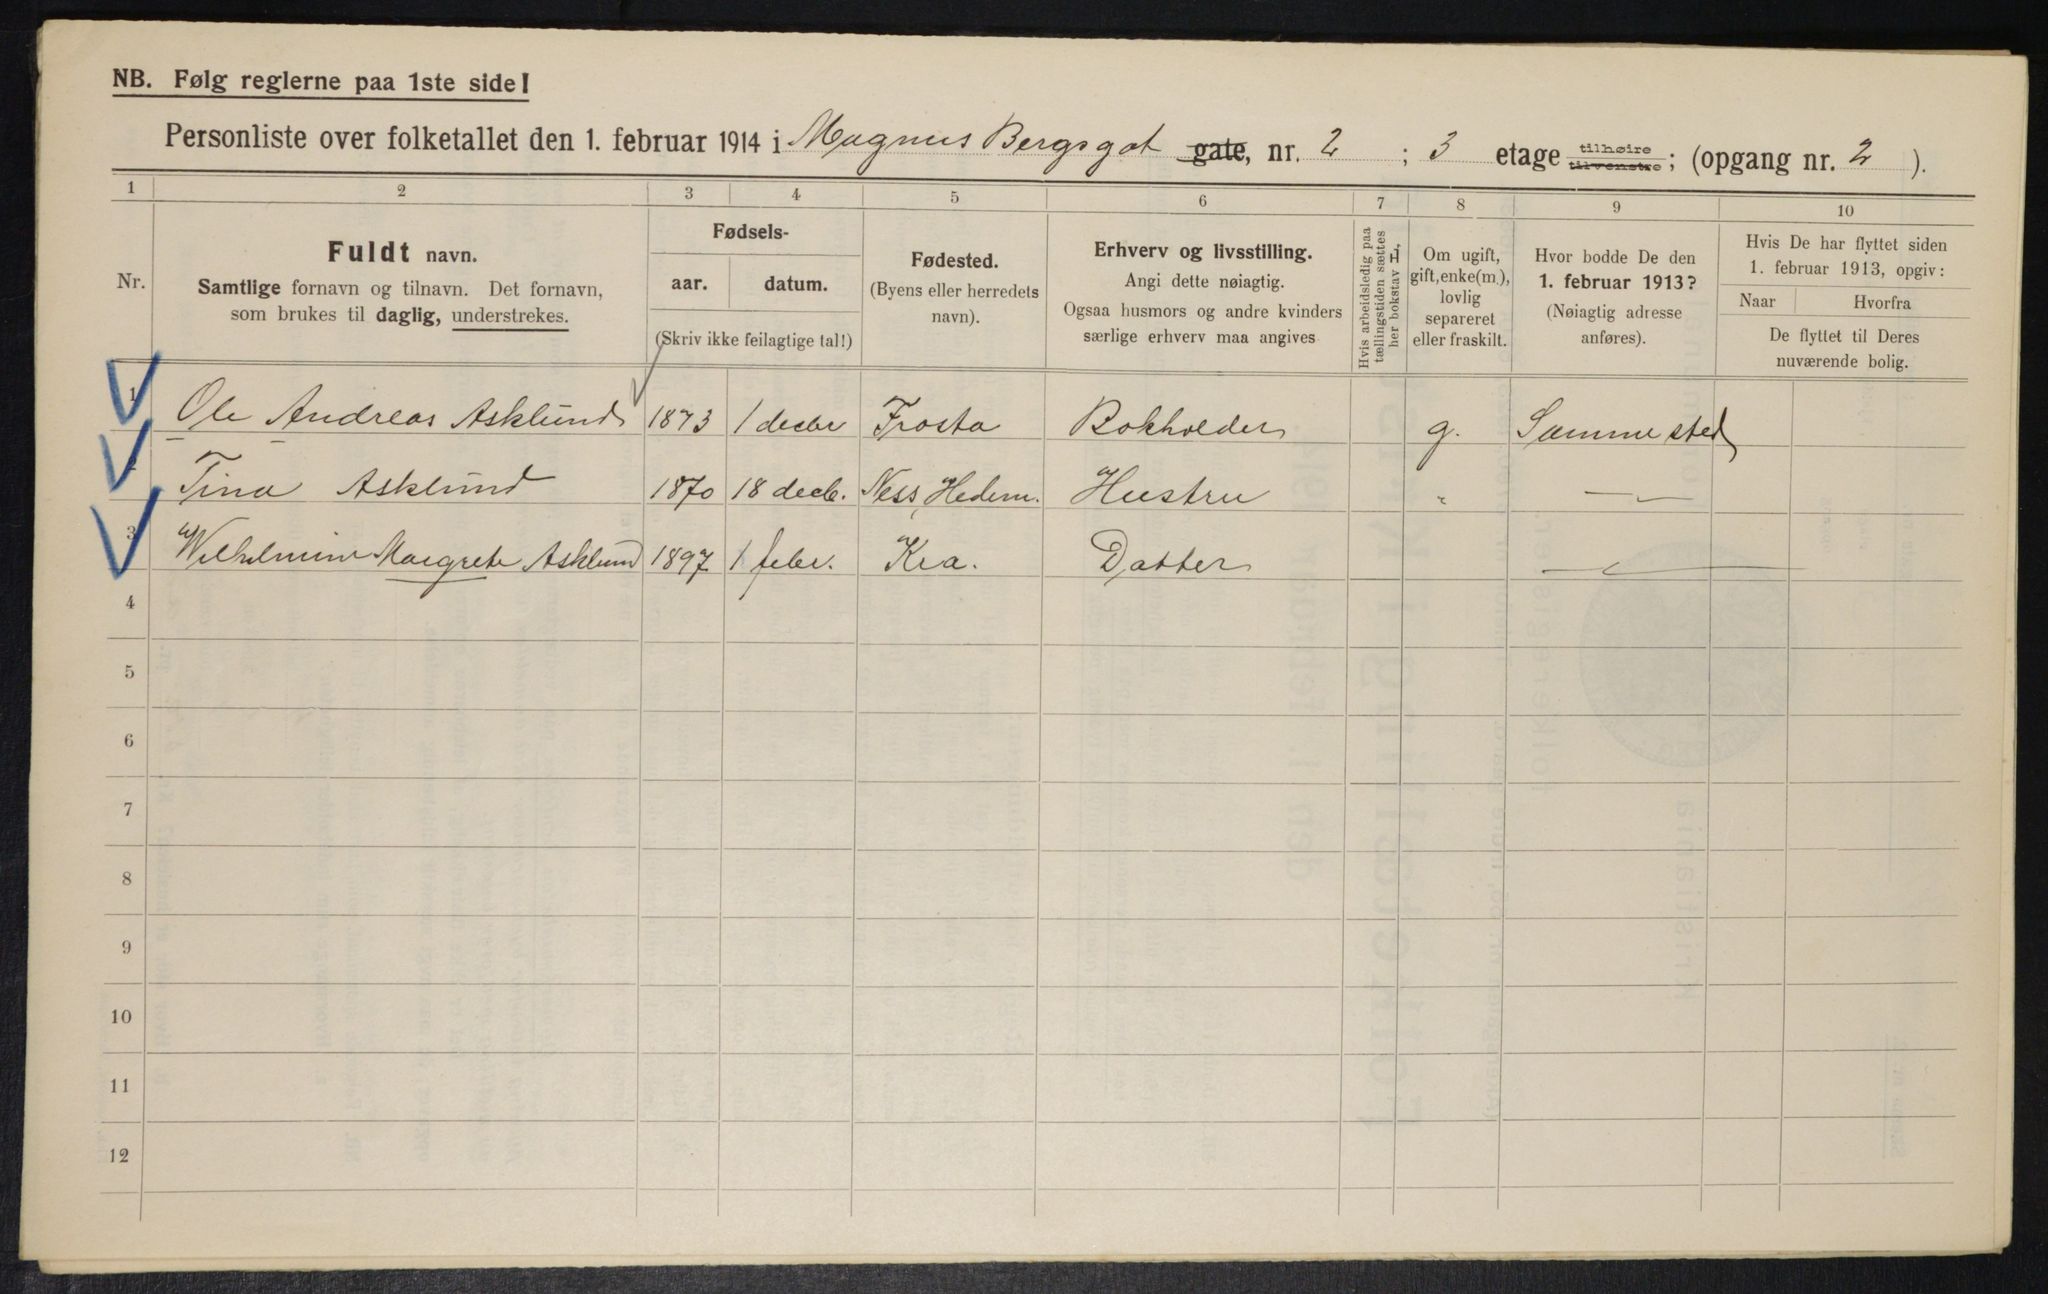 NB. Følg reglerne paa 1ste side!
Personliste over folketallet den 1. februar 1914 i Magnus Bergsgat gate, nr. 2 ; 3 etage tilhøire tilvenstre; (opgang nr. 2 ).
1 2 3 4 5 6 7 8 9 10
Nr.
Fuldt navn.
Samtlige fornavn og tilnavn. Det fornavn,
som brukes til daglig, understrekes.
Fødsels-
aar. datum.
(Skriv ikke feilagtige tal!)
Fødested.
(Byens eller herredets
navn).
Erhverv og livsstilling.
Angi dette nøiagtig.
Ogsaa husmors og andre kvinders
særlige erhverv maa angives
Hvis arbeidsledig paa
tællingstiden sættes
her bokstav L,
Om ugift,
gift, enke(m.),
lovlig
separeret
eller fraskilt.
Hvor bodde De den
1. februar 1913?
(Nøiagtig adresse
anføres).
Hvis De har flyttet siden
1. februar 1913, opgiv:
Naar Hvorfra
De flyttet til Deres
nuværende bolig.
1 Ole Andreas Asklund 1873 1 decbr Frosta Bokholder g. Samme sted
2 Tina Asklund 1870 18 decb. Ness, Hedem. Hustru " —
3 Wilhelmine Margrete Asklund 1897 1 febr. Kra. Datter —
4
5
6
7
8
9
10
11
12